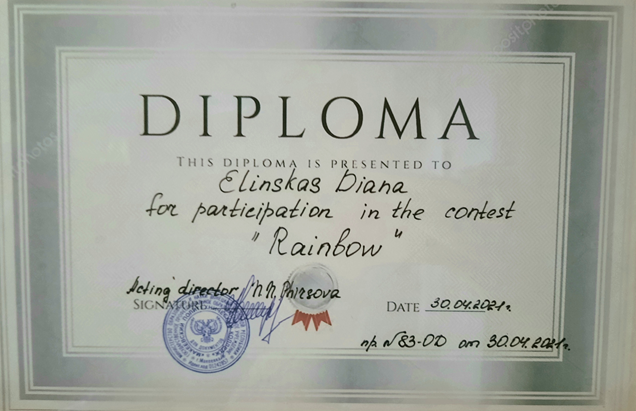 DIPLOMA
THIS DIPLOMA IS PRESENTED TO
Elinskas Diana
for participation in the contest
"Rainbow"
Acting director
SIGNATURE:
DATE 30.04.2021г.
пр. №83-ОД от 30.04.2021г.